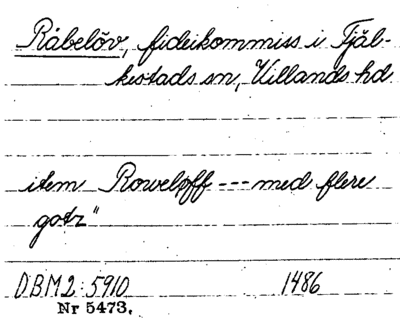 Råbelöv, fideikommiss i Fjäl-
kestads sn, Villands hd
item Roweløff --- med flere
gotz"
DBM2:5910 1486
Nr 5473.